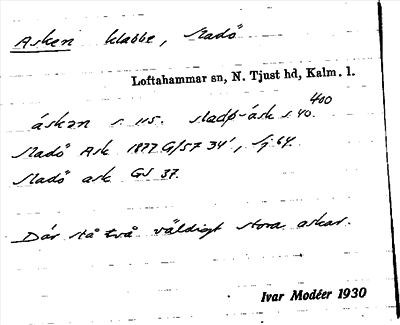 Asken klabbe, Sladö
Loftahammar sn, N. Tjust hd, Kalm. l.
åskən s. 115. sladö-åsk s. 40.
400
Sladö Ask 1877 G/57 34', Sj 64.
Sladö ask GS 37.
Där stå två väldigt stora askar.
Ivar Modéer 1930